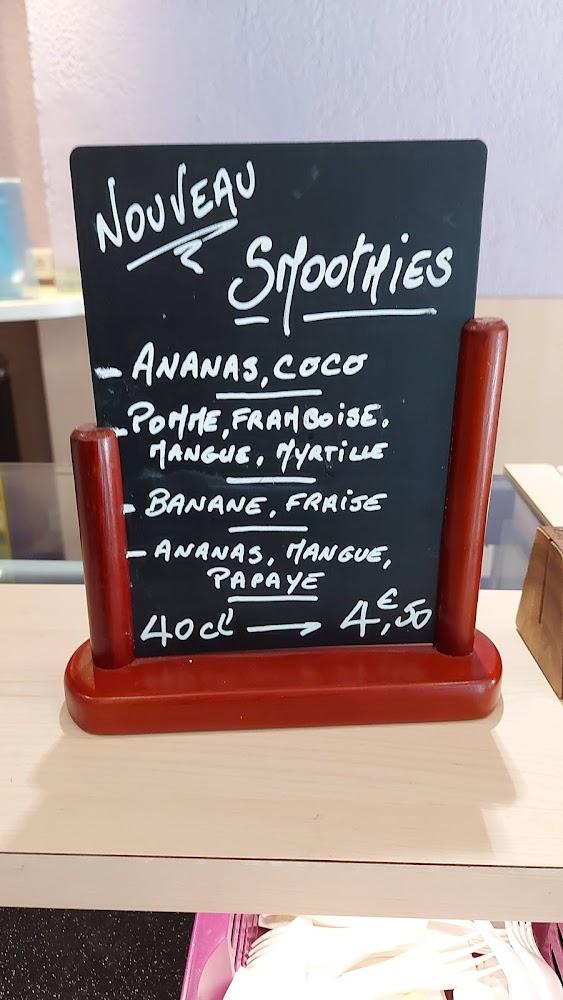 NOUVEAU
SMOOTHIES
- ANANAS, COCO
- POMME, FRAMBOISE,
MANGUE, MYRTILLE
- BANANE, FRAISE
- ANANAS, MANGUE,
PAPAYE
40cl → 4€,50